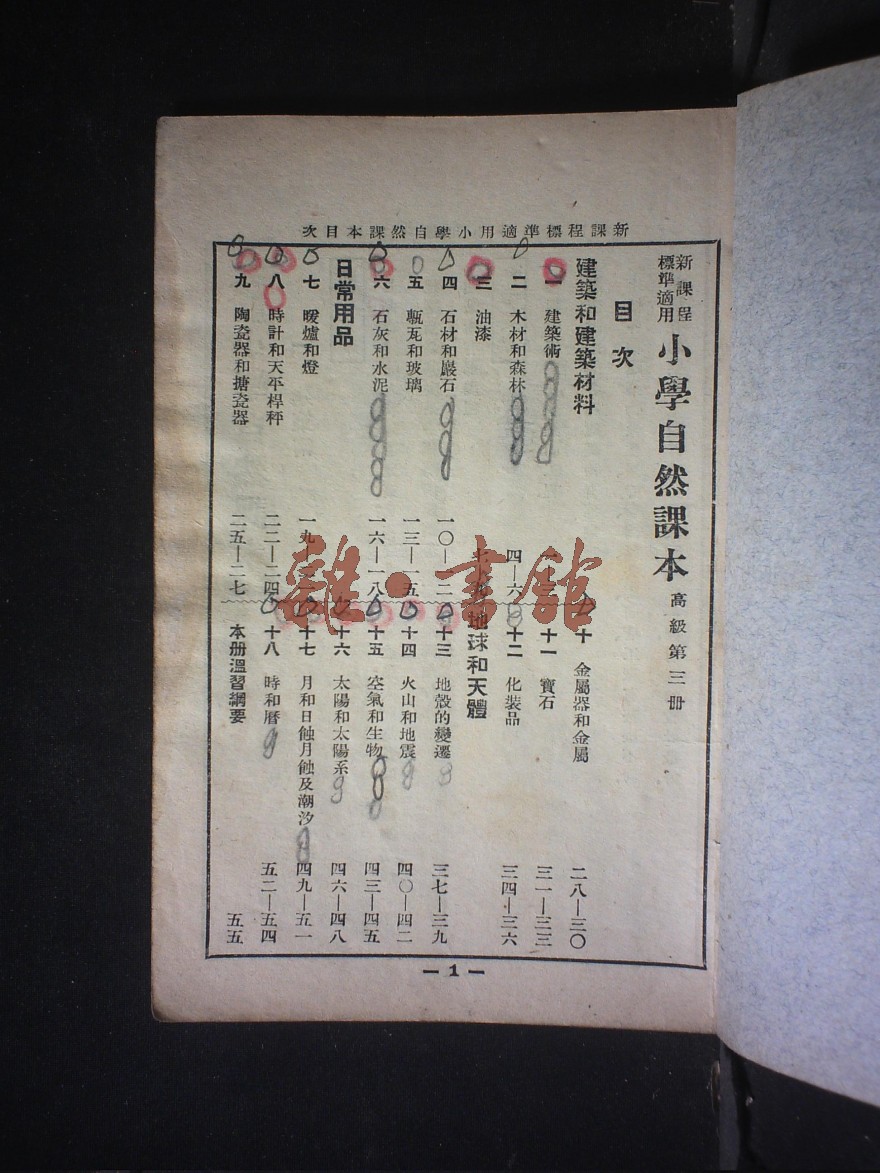 新課程標準適用小學自然課本目次
新課程標準適用 小學自然課本 高級第三册
目次
建築和建築材料
一 建築術
二 木材和森林 四—六
三 油漆
四 石材和巖石 一〇—一二
五 甎瓦和玻璃 一三—一五
六 石灰和水泥 一六—一八
日常用品
七 暖爐和燈 一九—
八 時計和天平桿秤 二二—二四
九 陶瓷器和搪瓷器 二五—二七
十 金屬器和金屬 二八—三〇
十一 寶石 三一—三三
十二 化裝品 三四—三六
地球和天體
十三 地殼的變遷 三七—三九
十四 火山和地震 四〇—四二
十五 空氣和生物 四三—四五
十六 太陽和太陽系 四六—四八
十七 月和日蝕月蝕及潮汐 四九—五一
十八 時和曆 五二—五四
本册溫習綱要 五五
— 1 —
雜·書館